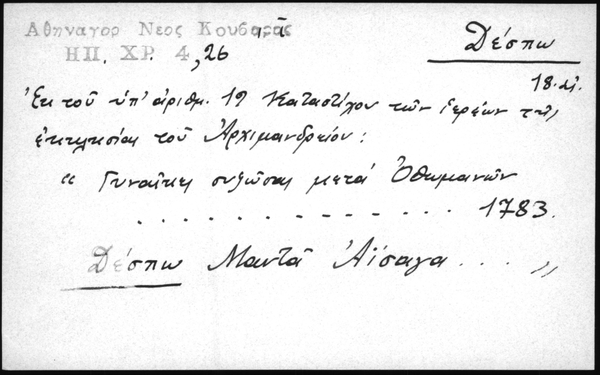 Αθηναγορ Νεος Κουβαρας
,ᾱ
Δέσπω
ΗΠ. ΧΡ. 4, 26
18. αἰ.
Ἐκ τοῦ ὑπ' ἀριθμ. 19 Καταστίχου τῶν ἱερέων τῆς
ἐκκλησίας τοῦ Ἀρχιμανδρείου:
" Γυναῖκες συζῶσαι μετά Ὀθωμανῶν
. . . . . . . . . . . . . 1783.
Δέσπω Μαντᾶ Ἀΐσαγα . . . "